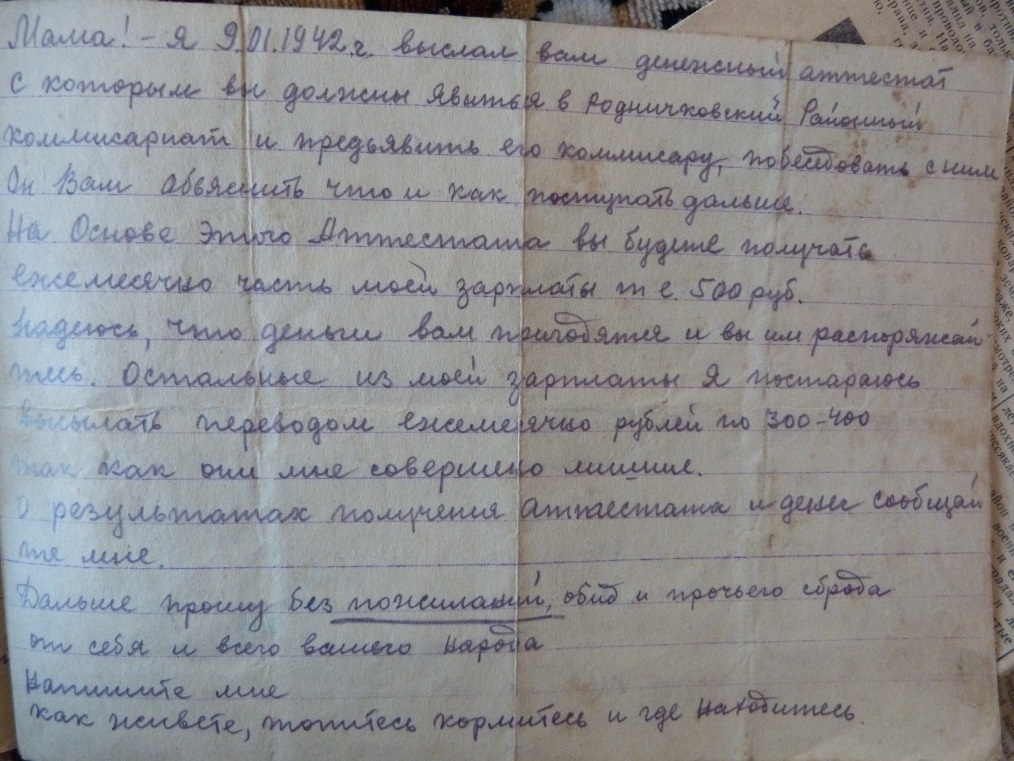 Мама! - я 9.01.1942.г. выслал вам денежный аттестат
с которым вы должны явиться в Родничковский Районный
коммисариат и предъявить его коммисару, побеседовать с ним
Он Вам объяснить что и как поступать дальше.
На Основе Этого Аттестата вы будете получать
ежемесячно часть моей зарплаты т е. 500 руб.
Надеюсь, что деньги вам пригодятся и вы им распоряжай
тесь. Остальные из моей зарплаты я постараюсь
высылать переводом ежемесячно рублей по 300-400
так как они мне совершено лишние.
О результатах получения аттестата и денег сообщай
те мне.
Дальше прошу без пожиланий, обид и прочьего сброда
от себя и всего вашего народа
Напишите мне
как живете, топитесь кормитесь и где находитесь.